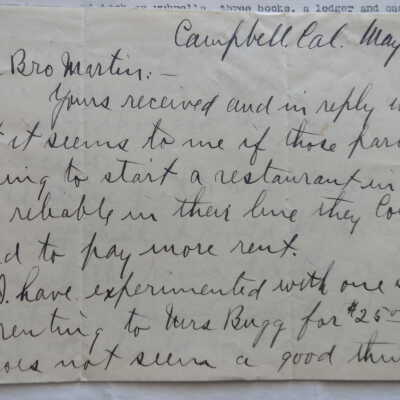 umbrella, three books, a ledger and
Campbell Cal. May
Bro Martin: —
Yours received and in reply
it seems to me if those par
ing to start a restaurant in
reliable in their line they Co
d to pay more rent.
I have experimented with one
renting to Mrs Bugg for $25.00
oes not seem a good thin